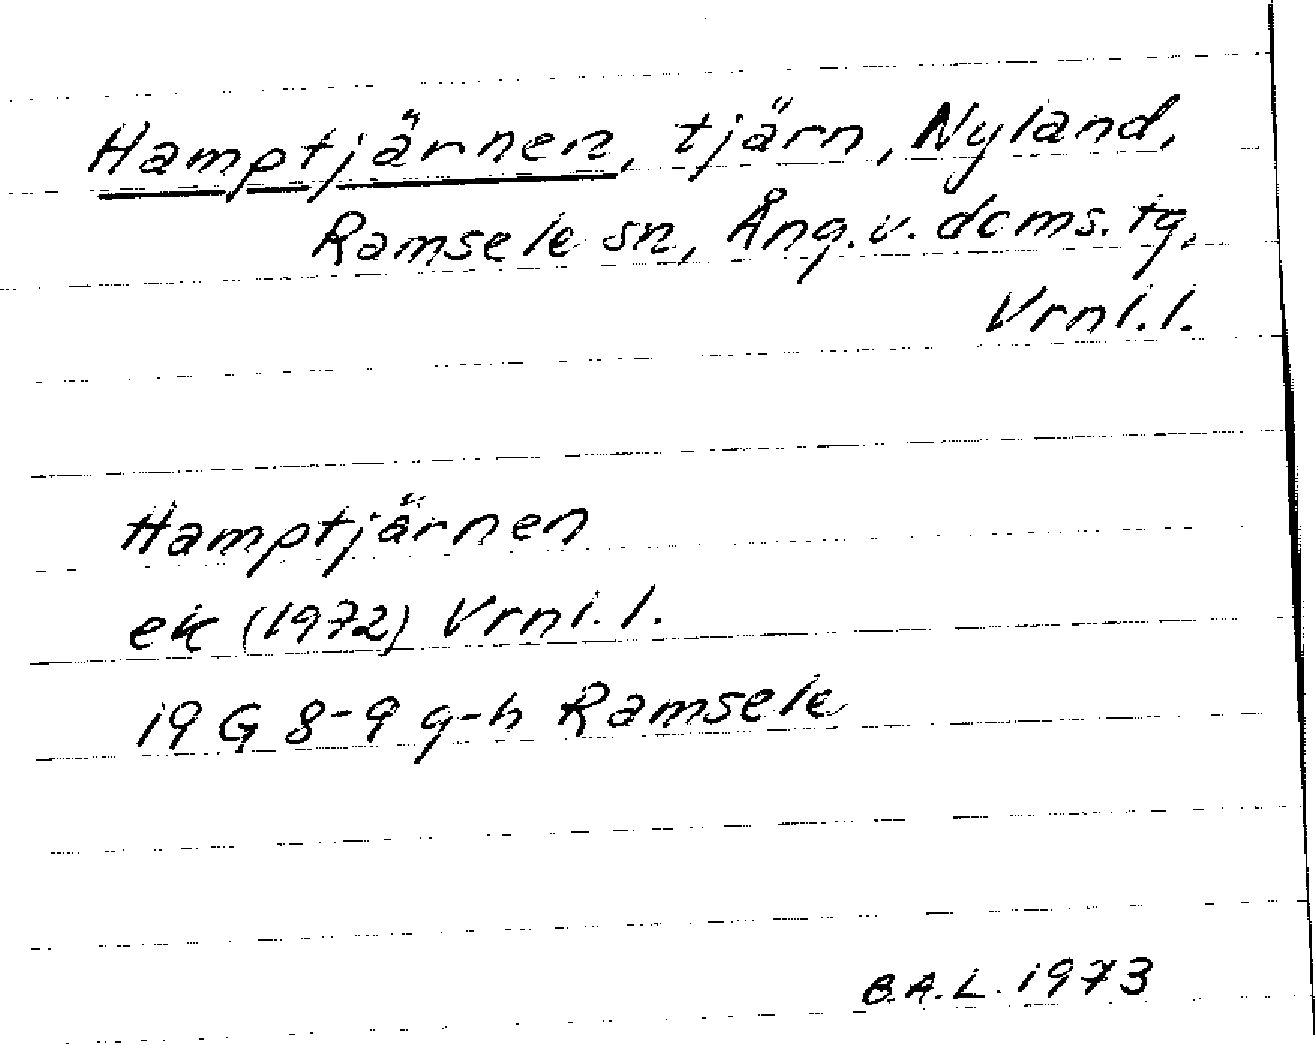 Hamptjärnen, tjärn, Nyland,
Ramsele sn, Ång.v. doms.tg,
Vrnl.l.
Hamptjärnen
ek (1972) Vrnl.l.
19 G 8-9 g-h Ramsele
B.A.L. 1973